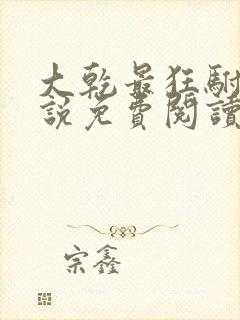 大乾最狂駙
說免費閱讀
宗鑫